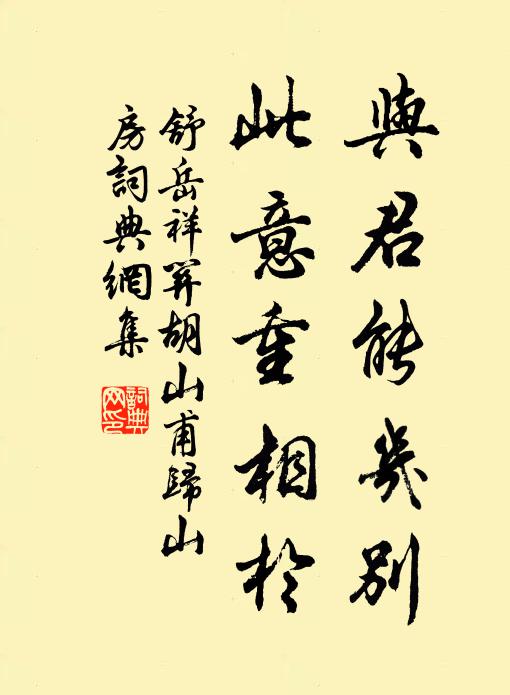 與君能幾別
此意重相於
舒岳祥畀胡山甫歸山
房詞典網集
詞典
网印